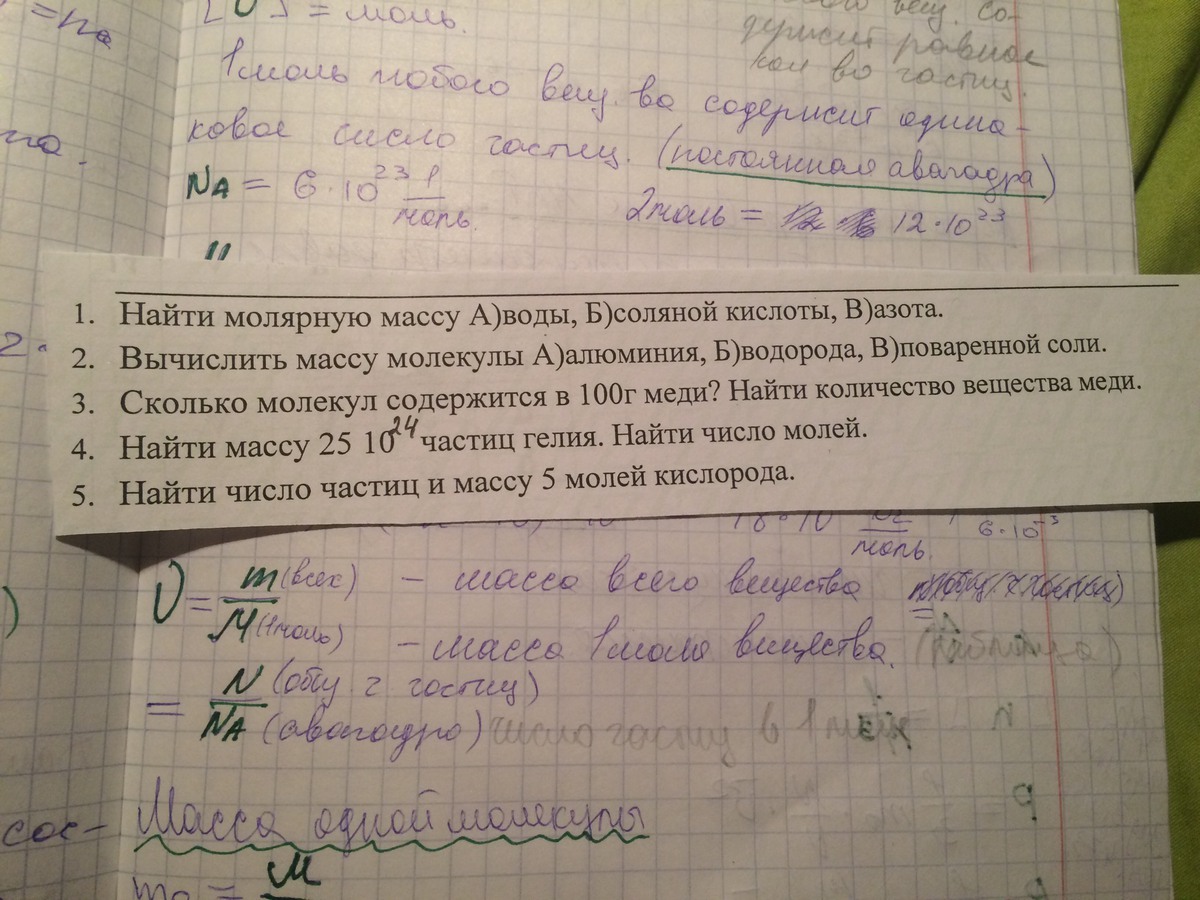 [υ] = моль.
держит равное
кол во частиц.
=Na
1 моль любого вещ. ва содержит одина-
ковое число частиц. (постоянная авагадра)
NA = 6·10^23 1/моль.
2моль = 12·10^23
2.
1. Найти молярную массу А)воды, Б)соляной кислоты, В)азота.
2. Вычислить массу молекулы А)алюминия, Б)водорода, В)поваренной соли.
3. Сколько молекул содержится в 100г меди? Найти количество вещества меди.
4. Найти массу 25 10^24 частиц гелия. Найти число молей.
5. Найти число частиц и массу 5 молей кислорода.
моль.
υ = m (всех) – масса всего вещества
M (1моль) – масса 1моля вещества. (таблица)
= N (общ. ч частиц)
NA (авагадро) число частиц в 1
сос-
Масса одной молекулы
m0 = M